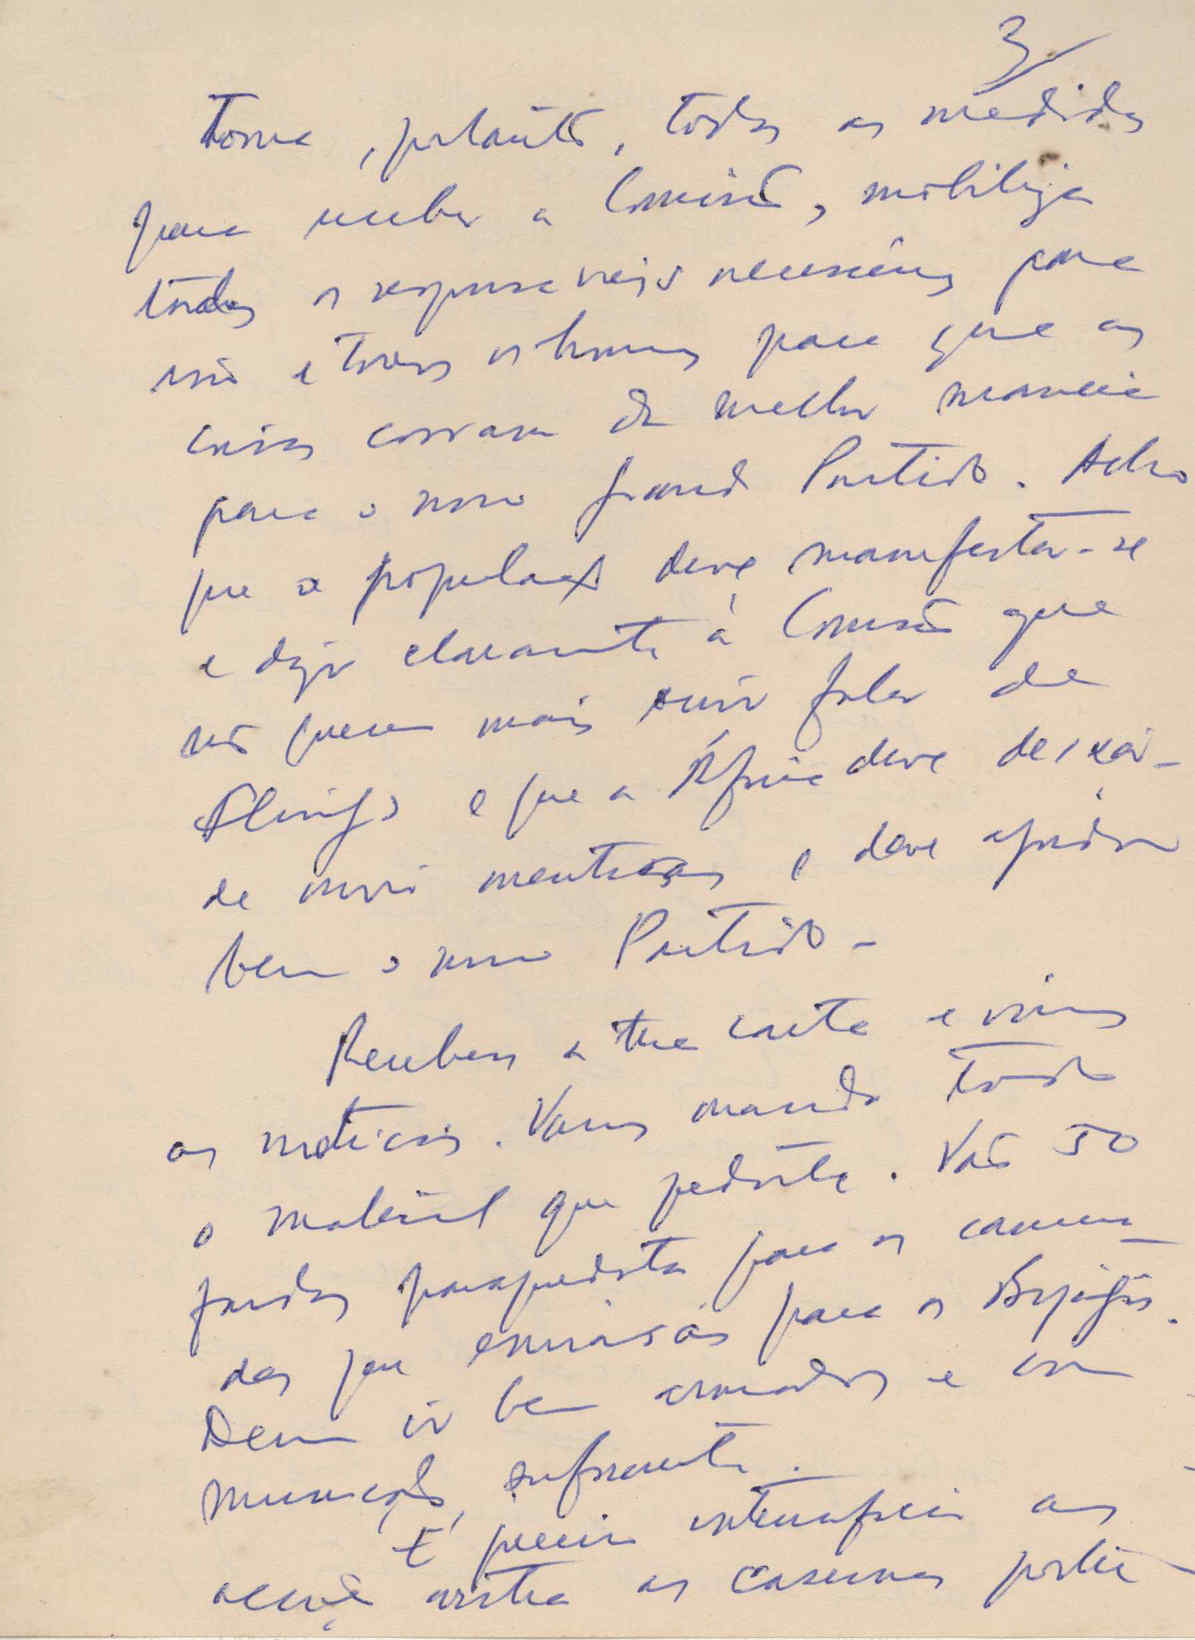 3
Toma, portanto, todas as medidas
para receber a Comissão, mobiliza
todos os responsáveis necessários para
isso e todos os homens para que as
coisas corram da melhor maneira
para o nosso grande Partido. Acho
que a população deve manifestar-se
e dizer claramente à Comissão que
não querem mais ouvir falar de
e que a África deve deixar-
de ouvir mentiras e deve ajudar
bem o nosso Partido -
Recebemos a tua carta e vimos
as notícias. Vamos mandar todo
o material que pediste. Vão 50
fardas paraquedista para os camara-
das que enviarás para os Bijagós.
Devem ir bem armados e com
munições suficiente.
É preciso intensificar as
acções contra as casernas portu-